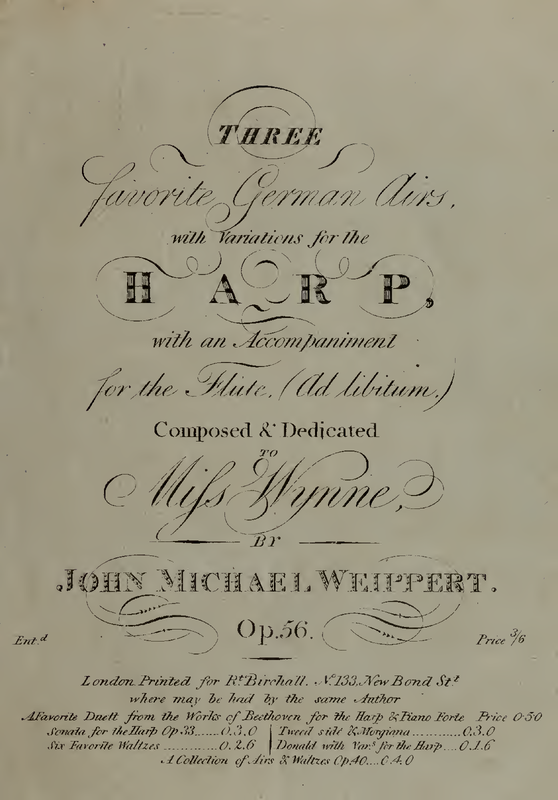 THREE
favorite German Airs,
with Variations for the
HARP,
with an Accompaniment
for the Flute, (Ad libitum.)
Composed & Dedicated
TO
Miſs Wynne,
BY
JOHN MICHAEL WEIPPERT.
Op.56.
Ent.d Price 3/6
London Printed for Rt. Birchall. No. 133. New Bond St.t
where may be had by the same Author
A Favorite Duett from the Works of Beethoven for the Harp & Piano Forte Price 0.50
Sonata for the Harp Op.33......0.3.0 Tweed side & Morgiana............0.3.0
Six Favorite Waltzes..............0.2.6 Donald with Var.s for the Harp....0.1.6
A Collection of Airs & Waltzes Op.40....0.4.0